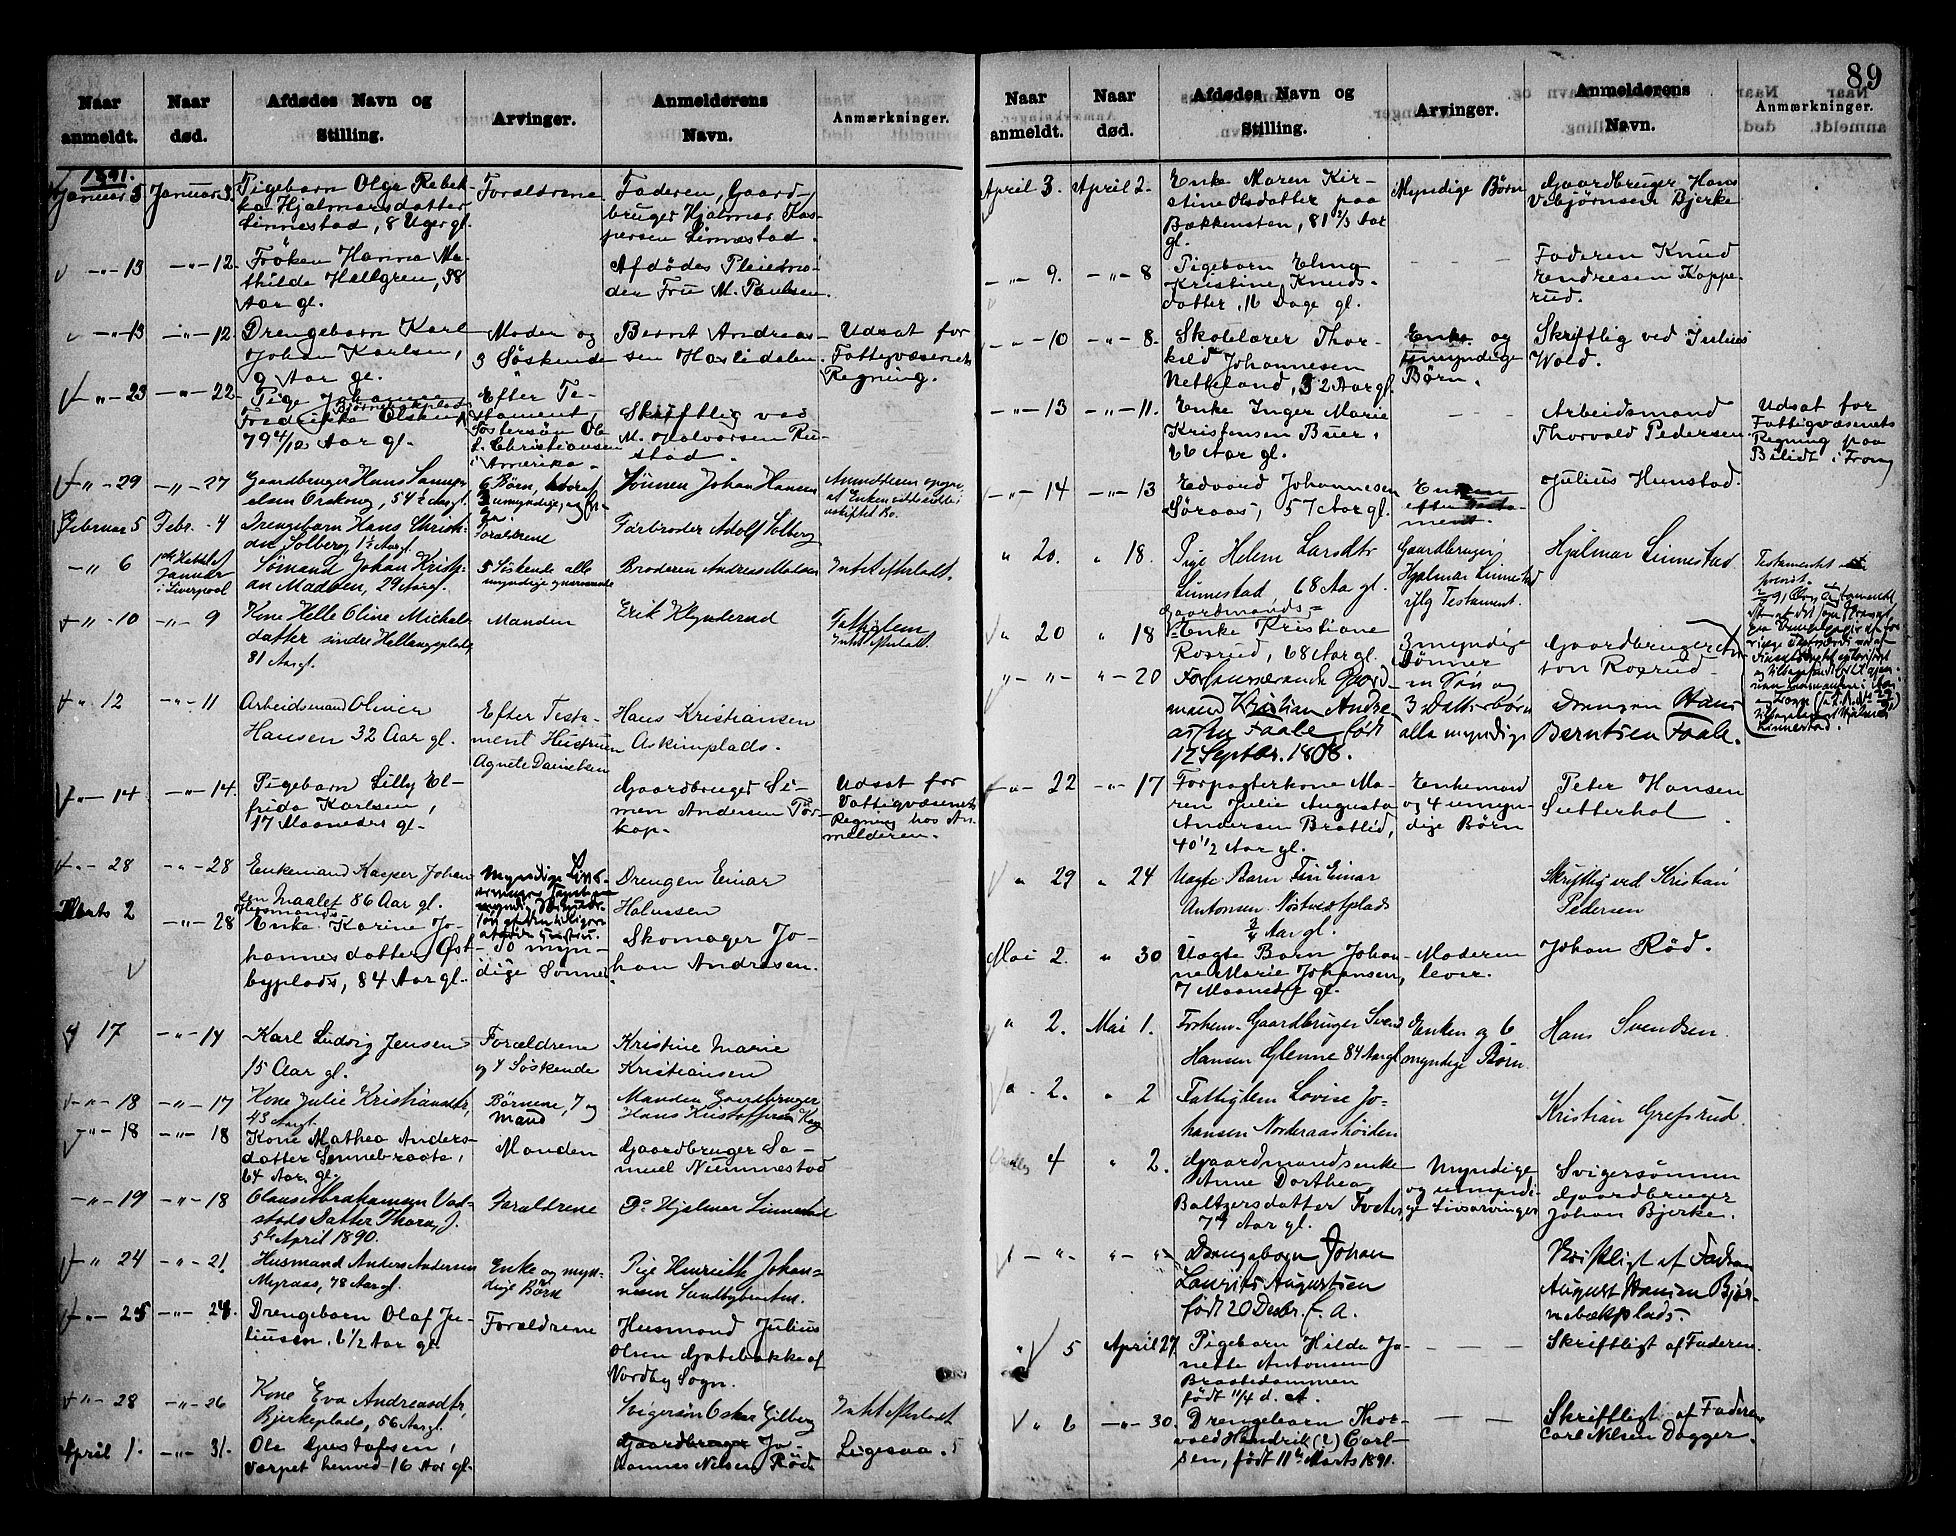 89
Naar anmeldt.
Naar død.
Afdødes Navn og Stilling.
Arvinger.
Anmelderens Navn.
Anmærkninger.
1891.
Januar 5
Januar 3.
Pigebarn Olga Rebek-
ka Hjalmarsdatter
Linnestad, 8 Uger gl.
Forældrene
Faderen, Gaard-
bruger Hjalmar Kas-
persen Linnestad.
-"- 13
-"- 12.
Frøken Hanna Ma-
thilde Hallgren, 38
Aar gl.
Afdødes Pleiemo-
der Fru M. Paulsen.
-"- 13
-"- 12
Drengebarn Karl
Johan Karlsen,
9 Aar gl.
Moder og
3 Søskende
Bernt Andreas-
sen Haslidalen.
Udsat for
Fattigvæsenets
Regning.
" - 23
-"- 22
Pige Johanne
Fredrikke Olsen
79 4/12 Aar gl.
Efter Te-
stament,
Søstersøn Ole
L. Christiansen
i Amerika.
Skriftlig ved
M. Halvorsen Ru-
stad.
-"- 29
-"- 27
Gaardbruger Hans Samu-
elsen Orskoug, 54½ Aar gl.
6 Børn, hvoraf
umyndige,
Sønnen Johan Hansen
Februar 5
Febr. - 4
Drengebarn Hans Christi-
an Solberg 1½ Aar gl.
Forældrene
Farbroder Adolf Solberg
-" 6
Januar
i Liverpool
Sømand Johan Kristi-
an Madsen, 29 Aar gl.
5 Søskende alle
myndige
Broderen Andreas Madsen
Intet efterladt.
" - 10
-"- 9
Kone Helle Oline Michels-
datter søndre
81 Aar gl.
Manden
Erik Klynderud
Fattiglem
Intet efterladt.
" 12
-"- 11
Arbeidsmand Oliver
Hansen 32 Aar gl.
Efter Testa-
ment Hustruen
Agnete
Hans Kristiansen
Askimplads.
" - 14
-"- 14.
Pigebarn Lilly El-
frida Karlsen,
17 Maaneder gl.
Gaardbruger Si-
men Andersen Tor-
kop.
Udsat for
Fattigvæsenets
Regning hos An-
melderen.
" - 28
-"- 28
Enkemand Kasper Johan-
sen Maalet 86 Aar gl.
Myndige
Drengen Einar
Halvorsen
Marts 2
-"- 28
Husmands
Enke Karine Jo-
hannesdatter Øst-
byplads, 84 Aar gl.
myn-
dige Sønner
Skomager Jo-
han Andresen.
" 17
-"- 14
Karl Ludvig Jensen
15 Aar gl.
Forældrene
og 4 Søskende
Kristine Marie
Kristiansen
-"- 18
-"- 17
Kone Julie Kristiansdtr,
43 Aar gl.
Børnene, 7 og
mand
Manden Gaardbruger
Hans Kristoffersen
-"- 18
-"- 18
Kone Mathea Anders-
datter Sønnebraate,
64 Aar gl.
Manden
Gaardbruger Sa-
muel Nummestad
-"- 19
-"- 18
Claus Abrahamsen Vad-
stads Datter Thora, J.
5te April 1890.
Forældrene
Do Hjalmar Linnestad
" 24
-"- 21.
Husmand Anders Andersen
Myraas, 78 Aar gl.
Enke og myn-
dige Børn
Pige Henriette Johan-
nesen
-"- 25
-"- 24.
Drengebarn Olaf Ju-
liussen, 6½ Aar gl.
Forældrene
Husmand Julius
Olsen Gjøtebakke af
Vordby Sogn.
-"- 28
-"- 26
Kone Eva Andreasdtr,
Bjerkeplads, 56 Aar gl.
Svigersøn Oskar Gilberg
Intet efterladt.
April 1.
-"- 31.
Ole Gustafsen,
Værpet henved 16 Aar gl.
Gaardbruger Jo-
hannes Nilsen Rød
Ligesaa.
Naar anmeldt.
Naar død.
Afdødes Navn og Stilling.
Arvinger.
Anmelderens Navn.
Anmærkninger.
April 3.
April 2.
Enke Maren Kir-
stine Olsdatter paa
Bækkensten, 81 2/3 Aar
gl.
Myndige Børn
Gaardbruger Hans
Vebjørnsen Bjerke
-"- 9.
-"- 8
Pigebarn Elma
Kristine Knuds-
datter, 16 Dage gl.
Faderen Knud
Endresen Koppe-
rud.
-"- 10
-"- 8.
Skolelærer Thor-
kild Johannesen
Netteland, 32 Aar gl.
Enke og
umyndige
Børn.
Skriftlig ved Julius
Wold.
-"- 13
-"- 11.
Enke Inger Marie
Kristensen Buer,
66 Aar gl.
Arbeidsmand
Thorvald Pedersen
Udsat for
Fattigvæsenets
Regning paa
Bilidt i Frogn
-"- 14
-"- 13
Edvard Johannesen
Søraas, 57 Aar gl.
Enken
efter Testa-
ment.
Julius Hunstad.
" 20.
" 18.
Pige Helene Larsdtr
Linnestad 68 Aar gl.
Gaardbruger
Hjalmar Linnestad
iflg Testament.
Hjalmar Linnestad.
Testamentet
" 20
" 18
Gaardmands-
Enke Kristiane
Rosrud, 68 Aar gl.
3 myndige
Sønner
Gaardbruger An-
ton Rosrud.
" - " -
" - 20
Forhenværende Gaard-
mand Kristian Andre-
assen Faale født
12 Septbr. 1808.
en Søn og
3 Datterbørn
alle myndige
Drengen Hans
Berntsen Faale.
-"- 22
-"- 17
Forpagterkone Ma-
ren Julie Augusta
Andersen Bratlid,
40 1/2 Aar gl.
Enkemand
og 4 umyn-
dige Børn
Peter Hansen
Sutterhol
" 29
" 24
Uægte Barn Fin Einar
Antonsen Nøstvedtplads
3/4 Aar gl.
Skriftlig ved Kristian
Pedersen
Mai 2.
" 30
Uægte Barn Johan-
ne Marie Johansen,
7 Maaneder gl.
Moderen
lever.
Johan Rød.
" 2.
Mai 1.
Forhenv. Gaardbruger Svend
Hansen Glenne 84 Aar gl
Enken og 6
myndige Børn
Hans Svendsen.
" 2.
" 2
Fattiglem Lovise Jo-
hansen Norderaashøiden
Kristian Grefsrud.
4
" 2.
Gaardmandsenke
Anne Dorthea
Baltzersdatter Foster,
79 Aar gl.
Myndige
og umyndi-
ge Livsarvinger
Svigersønnen
Gaardbruger
Johan Bjerke.
- " -
" - "
Drengebarn Johan
Laurits Augustsen
født 20 Decbr. f. A.
Skriftligt af Faderen
August Hansen Bjør-
nebækplads.
" 5
April 27
Pigebarn Hilda Ja-
nette Antonsen
Braatedammen
født 11/4 d. A.
Skriftligt af Faderen.
" 6
-"- 30.
Drengebarn Thor-
vald Hendrik (?) Carl-
sen, født 11te Marts 1891.
Skriftligt af Faderen
Carl Nilsen Dagger.